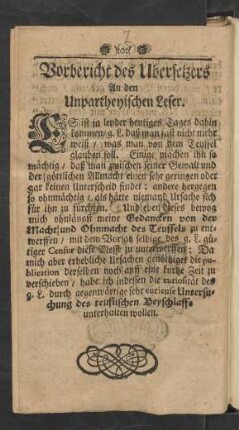 Vorbericht des Ubersetzers
An den
Unpartheyischen Leser.
ES ist ja leyder heutiges Tages dahin
kommen/ g. L. daß man fast nicht mehr
weiß / was man von dem Teuffel
glauben soll. Einige machen ihn so
mächtig / daß man zwischen seiner Gewalt und
der göttlichen Allmacht einen sehr geringen oder
gar keinen Unterscheid findet; andere hergegen
so ohnmächtig, als hätte niemand Ursache sich
für ihn zu fürchten. Und eben dieses bewog
mich ohnlängst meine Gedancken von der
Macht und Ohnmacht des Teuffels zu ent-
werffen / mit dem Vorsatz selbige des g. L. gü-
tiger Censur diese Messe zu unterwerffen; Da
mich aber erhebliche Ursachen genöthiget die pu-
blication derselben noch auff eine kurtze Zeit zu
verschieben / habe ich indessen die curiosität des
g. L. durch gegenwärtige sehr curieuse Untersu-
chung des teuflischen Beyschlaffs
unterhalten wollen.